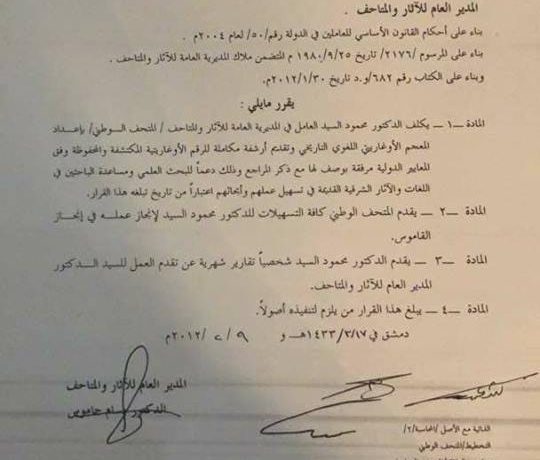 المدير العام للآثار والمتاحف .
بناء على أحكام القانون الأساسي للعاملين في الدولة رقم /٥٠/ لعام ٢٠٠٤م .
بناء على المرسوم /٢١٧٦/ تاريخ ١٩٨٠/٩/٢٥ م المتضمن ملاك المديرية العامة للآثار والمتاحف .
وبناء على الكتاب رقم ٦٨٢/و.د تاريخ ٢٠١٢/١/٣٠م.
يقرر مايلي :
المادة ــ ١ ــ يكلف الدكتور محمود السيد العامل في المديرية العامة للآثار والمتاحف / المتحف الوطني/ بإعداد
المعجم الأوغاريتي اللغوي التاريخي وتقديم أرشفة متكاملة للرقم الأوغاريتية المكتشفة والمحفوظة وفق
المعايير الدولية مرفقة بوصف لها مع ذكر المراجع وذلك دعماً للبحث العلمي ومساعدة الباحثين في
اللغات والآثار الشرقية القديمة في تسهيل عملهم وأبحاثهم اعتباراً من تاريخ تبلغه هذا القرار.
المادة ــ ٢ ــ يقدم المتحف الوطني كافة التسهيلات للدكتور محمود السيد لإنجاز عمله في إنجاز
القاموس.
المادة ــ ٣ ــ يقدم الدكتور محمود السيد شخصياً تقارير شهرية عن تقدم العمل للسيد الدكتور
المدير العام للآثار والمتاحف.
المادة ــ ٤ ــ يبلغ هذا القرار من يلزم لتنفيذه أصولاً.
دمشق في ١٤٣٣/٣/١٧هـ و ٩ / ٢ /٢٠١٢م
المدير العام للآثار والمتاحف
الدكتور بسام جاموس
المالية مع الأصل /المحاسبة/٢/
التخطيط/المتحف الوطني